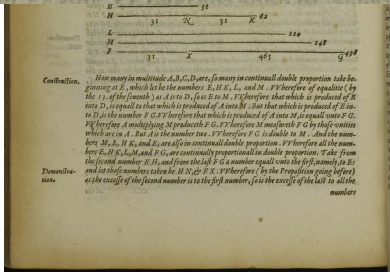 E 31
H 31 N 31 K 62
L 124
M 248
F 31 X 465 G 496
Construction.
How many in multitude A,B,C,D, are, so many in continuall double proportion take be-
ginning at E, which let be the numbers E, HK, L, and M. VVherefore of equalitie (by
the 13. of the seuenth) as A is to D, so is E to M. VVherefore that which is produced of E
into D, is equall to that which is produced of A into M. But that which is produced of E in-
to D, is the number FG. VVherefore that which is produced of A into M, is equall vnto FG.
VVherefore A multiplying M produceth FG. VVherefore M measureth FG by those vnities
which are in A. But A is the number two. VVherefore FG is double to M. And the num-
bers M, L, HK, and E, are also in continuall double proportion. VVherefore all the num-
bers E, HK, L, M, and FG, are continually proportionall in double proportion. Take from
the second number KH, and from the last FG a number equall vnto the first, namely, to E:
Demonstra-
tion.
and let those numbers taken be HN, & FX. VVherefore (by the Proposition going before)
as the excesse of the second number is to the first number, so is the excesse of the last to all the
numbers